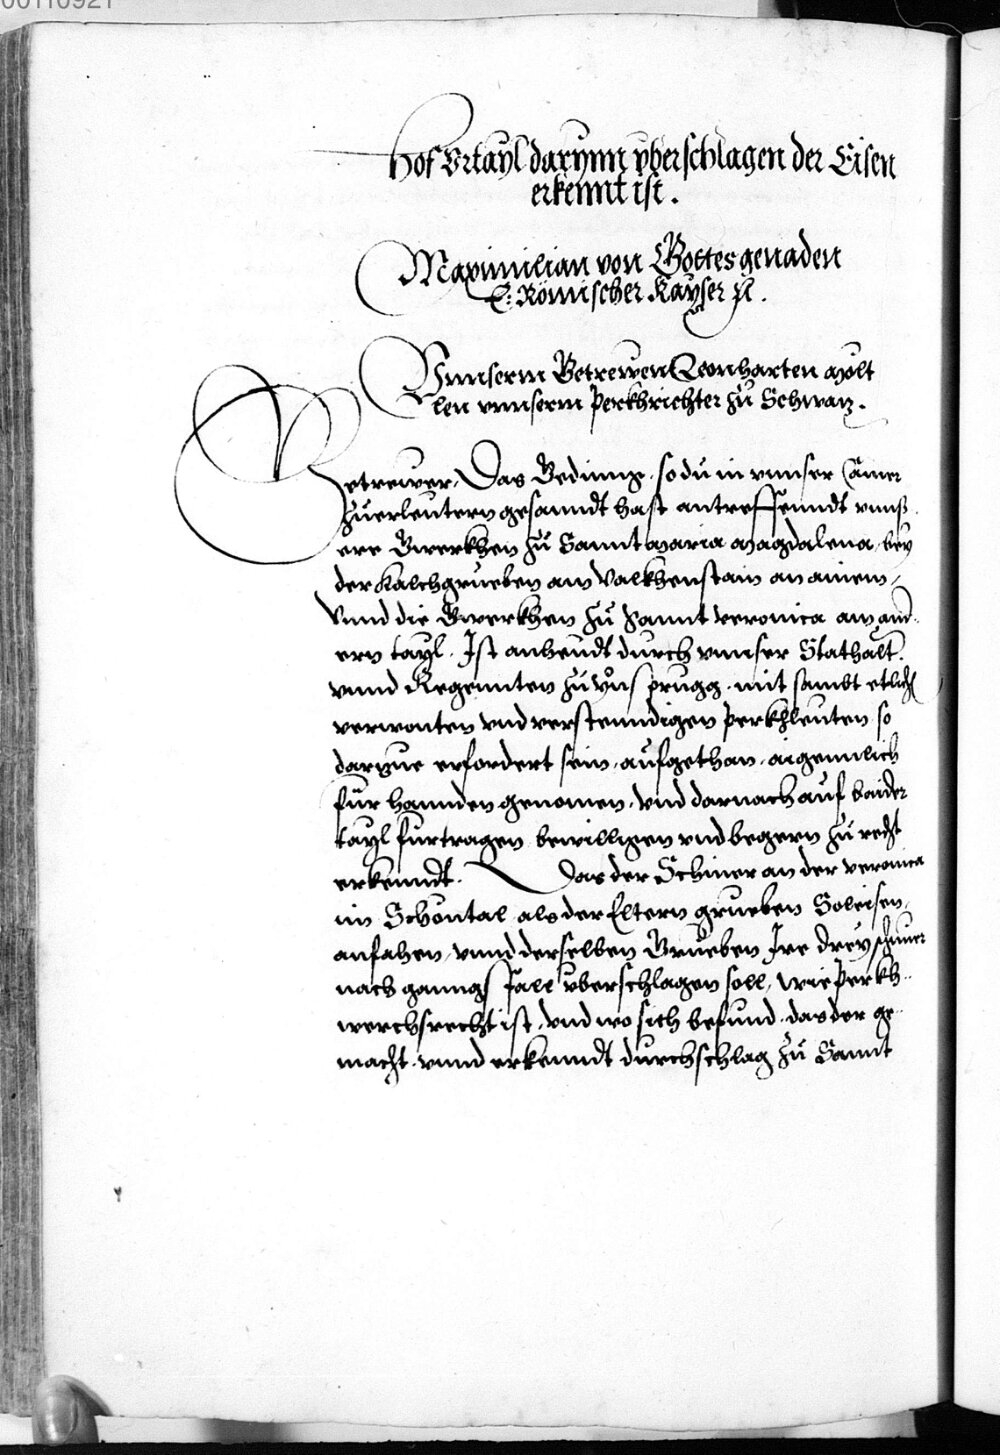 00110921
Hof Vrtayl darynn vberschlagen der Eisen
erkennt ist.
Maximilian von Gottes genaden
E: Römischer Kayser
Vnnserm Getrewen Leonharten Möltt
len vnnserm Perkhrichter zu Schwaz.
Getrewer, Das Geding, so du in vnnser Camer
zu erleutern gesanndt hast antreffenndt vnns
ere Gwerkhen zu Sannt Maria Magdalena, bey
der Kalchgrueben am Valkhenstain an ainem,
Vnnd die Gwerkhen zu Sannt Veronica am and
ern tayl. Ist anheudt durch vnnser Stathalt.
vnnd Regennten zu Ynsprugg, mit sambt etlich
verwonten vnd verstenndigen Perkhleuten so
darzue erfordert sein, aufgethan, aigennlich
fur hannden genomen, vnd darnach auf baider
tayl furtragen bewilligen vnd begern zu recht
erkenndt. Das der Schiner an der Veronica
im Schöntal als der Eltern grueben Soleisen,
anfahen, vnnd derselben Grueben Ire drey schiner
nach ganngs fäll vberschlagen soll, wie Perkh
werchsrecht ist, vnd wo sich befund, das der ge
macht, vnnd erkenndt durchschlag zu Sannt